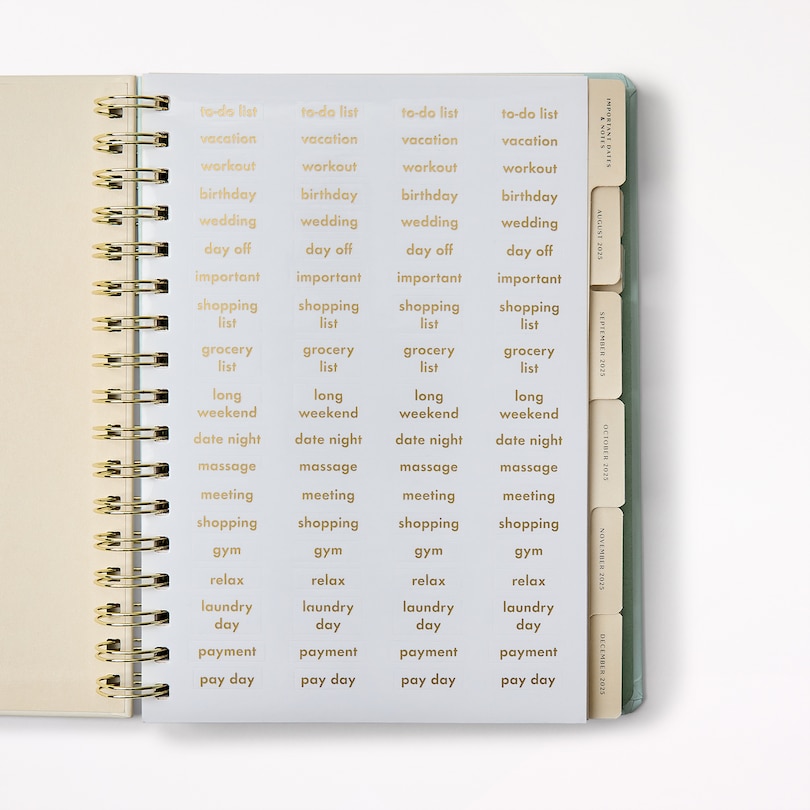 to-do list to-do list to-do list to-do list
vacation vacation vacation vacation
workout workout workout workout
birthday birthday birthday birthday
wedding wedding wedding wedding
day off day off day off day off
important important important important
shopping shopping shopping shopping
list list list list
grocery grocery grocery grocery
list list list list
long long long long
weekend weekend weekend weekend
date night date night date night date night
massage massage massage massage
meeting meeting meeting meeting
shopping shopping shopping shopping
gym gym gym gym
relax relax relax relax
laundry laundry laundry laundry
day day day day
payment payment payment payment
pay day pay day pay day pay day
IMPORTANT DATES
& NOTES
AUGUST 2025
SEPTEMBER 2025
OCTOBER 2025
NOVEMBER 2025
DECEMBER 2025